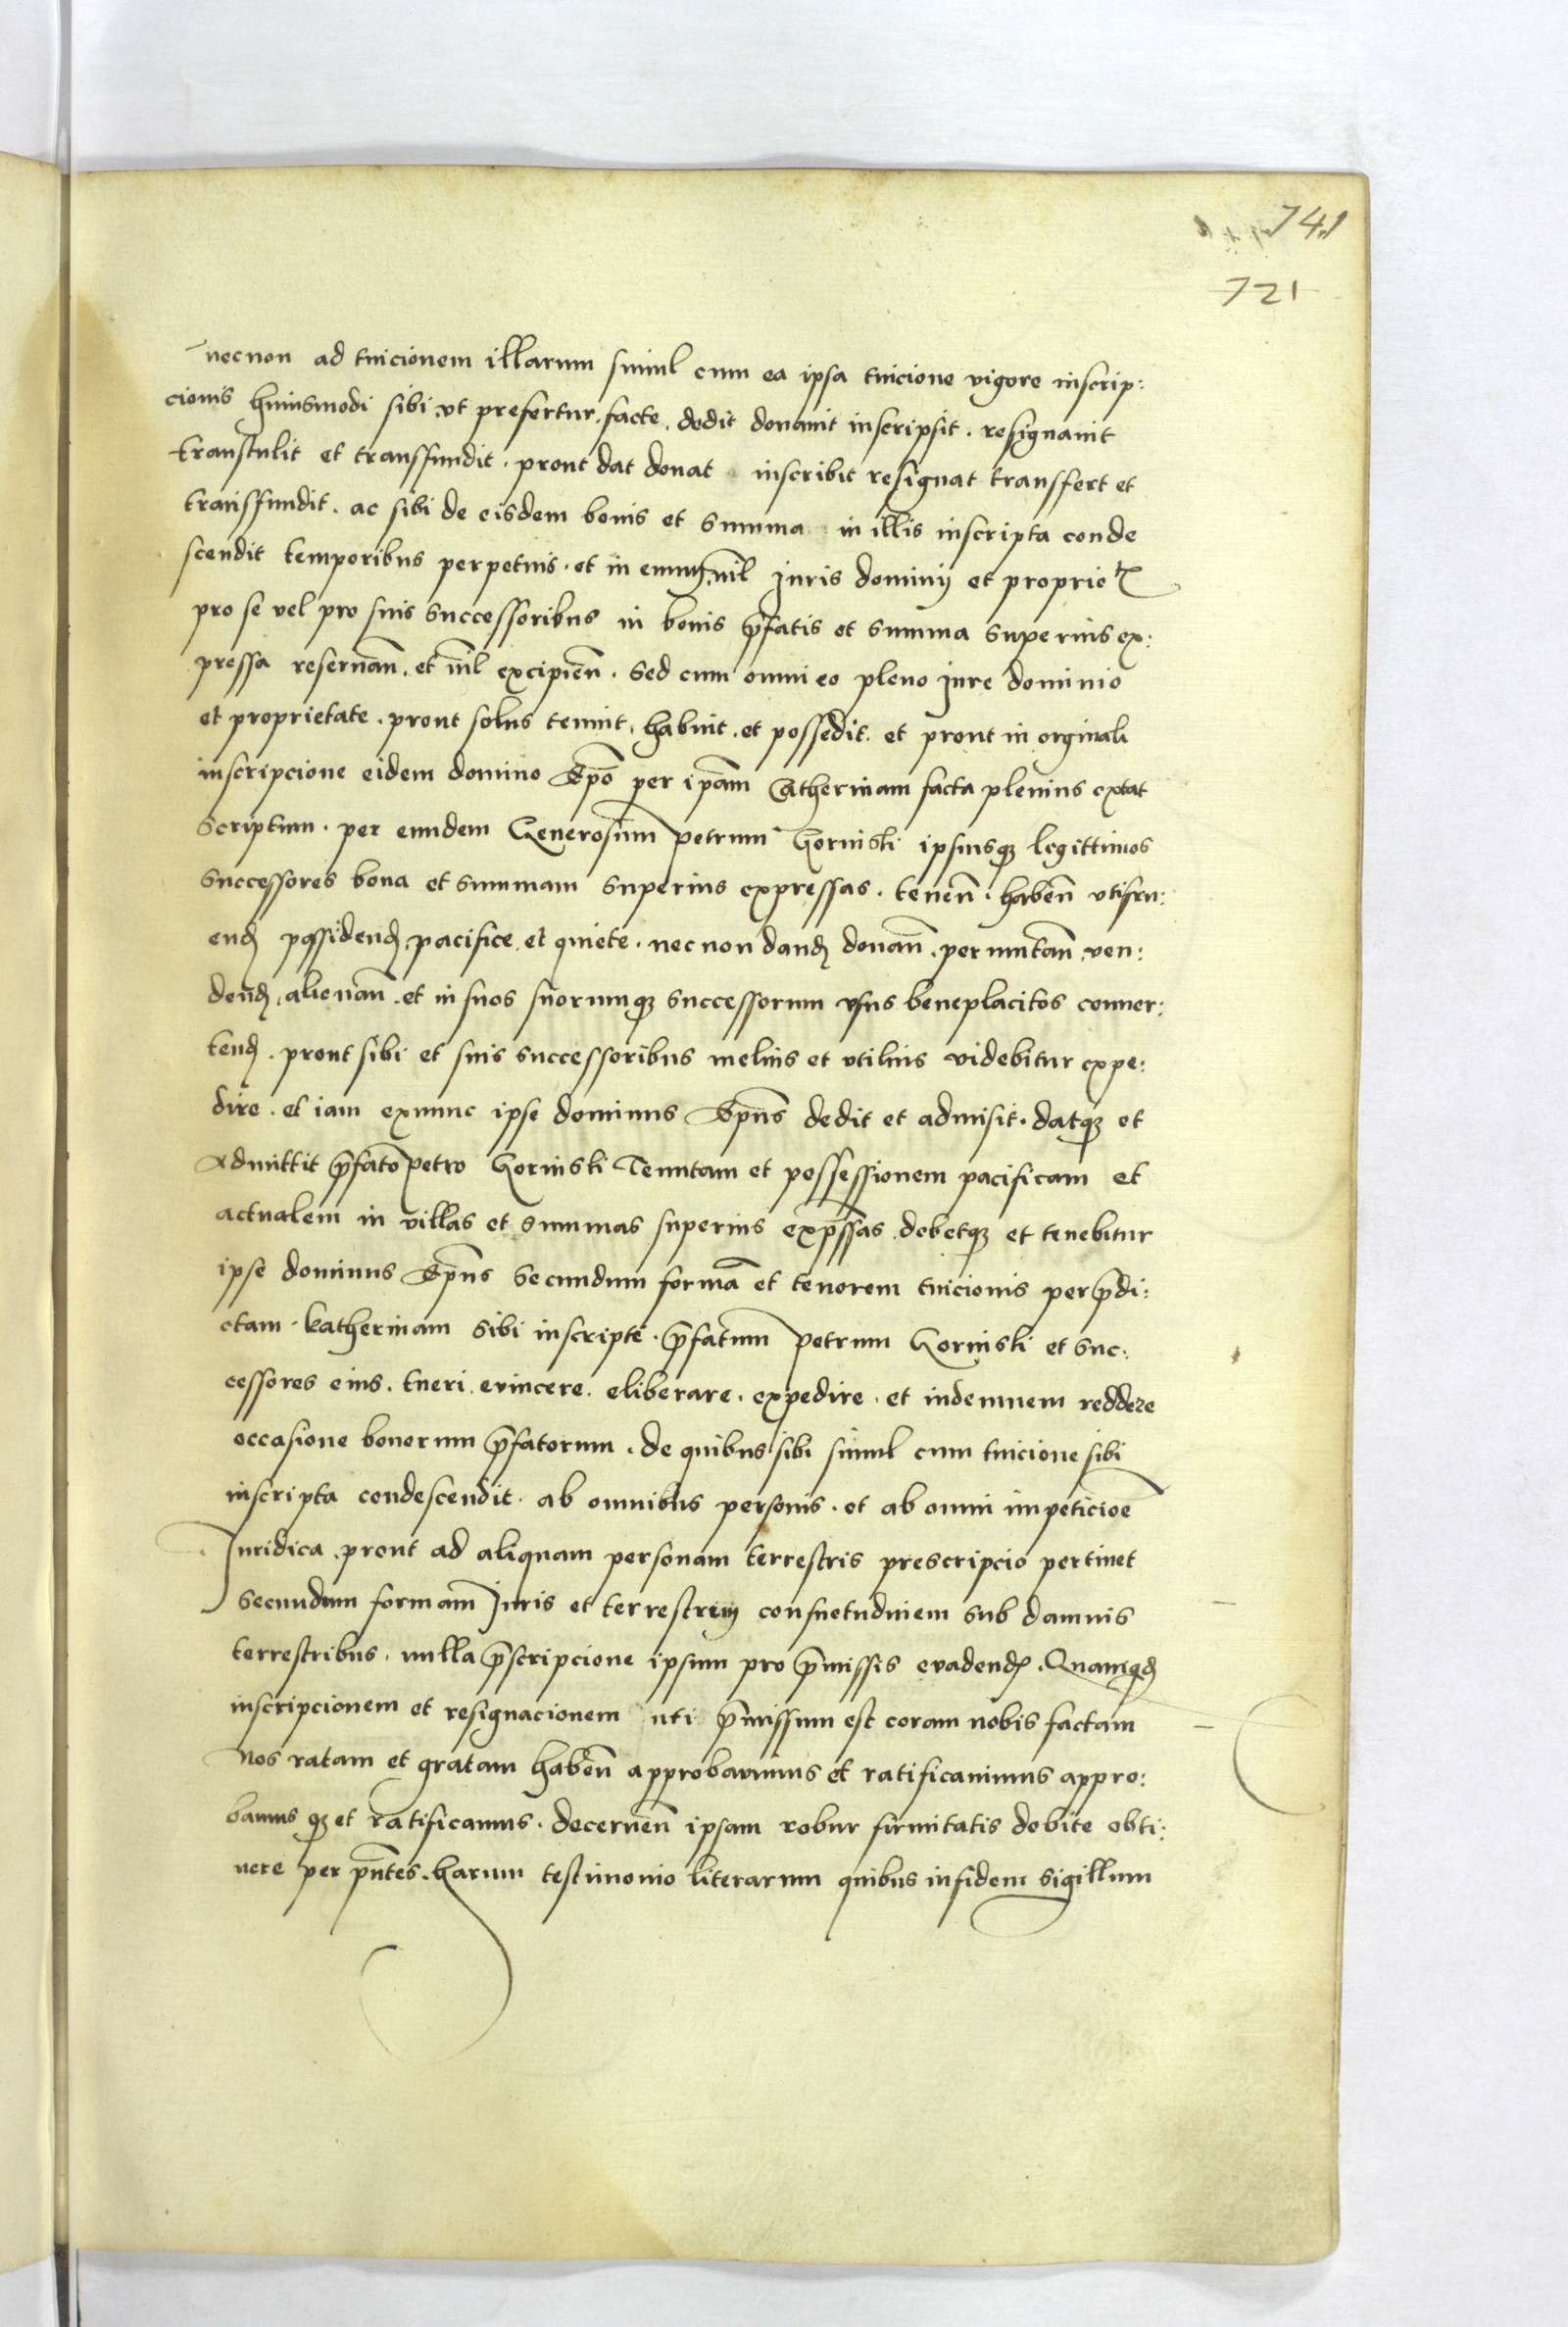 741
721
necnon ad tuicionem illarum simul cum ea ipsa tuicione vigore inscrip:
cionis huiusmodi sibi vt prefertur. facte. dedit donauit inscripsit. resignauit
transtulit et transffundit. prout dat donat inscribit resignat transffert et
transffundit. ac sibi de eisdem bonis et summa in illis inscripta conde
scendit temporibus perpetuis. et in euum. nil Juris dominij et propriet
pro se vel pro suis successoribus in bonis p̄fatis et summa superius ex:
pressa reseruan̄. et nīl excipien̄. sed cum omni eo pleno Jure dominio
et proprietate. prout solus tenuit. habuit. et possedit. et prout in orginali
inscripcione eidem domino Ep̄o per ip̄am Catherinam facta plenius extat
scriptum. per eundem Generosum̄ Petrum Gorinski ipsiusqꝫ legittimos
successores bona et summam superius expressas. tenen̄. haben̄ vtifru:
end̨ possidend̨ pacifice et quiete. necnon dand̨ donan̄. permutan̄ ven:
dend̨, alienan̄. et in suos suorumqꝫ successorum vsus beneplacitos conuer:
tend̨. prout sibi et suis successoribus melius et vtilius videbitur expe:
dire. et iam exnunc ipse dominus Ep̄us dedit et admisit. datqꝫ et
Admittit p̄fato Petro Gorinski Tenutam et possessionem pacificam et
actualem in villas et summas superius exp̄ssas. debetqꝫ et tenebitur
ipse dominus Ep̄us secundum formā et tenorem tuicionis per p̄di:
ctam. Katherinam sibi inscripte. p̄fatum̄ Petrum Gorinski et suc:
cessores eius. tueri. evincere. eliberare. expedire. et indemnem reddere
occasione bonorum p̄fatorum. de quibus sibi simul cum tuicione sibi
inscripta condescendit. ab omnibus personis. et ab omni impeticioē
Juridica. prout ad aliquam personam terrestris prescripcio pertinet
secundum formam Juris et terrestrem consuetudinem sub damnis
terrestribus. nulla p̄scripcione ipsum pro p̄missis evadend̨. Quamqd̨
inscripcionem et resignacionem uti p̄missum est coram nobis factam
Nos ratam et gratam haben̄ approbauimus et ratificauimus appro:
bamus qꝫ et ratificamus. decernen̄ ipsam robur firmitatis debite obti:
nere per pn̄tes. harum testimonio literarum quibus infidem sigillum